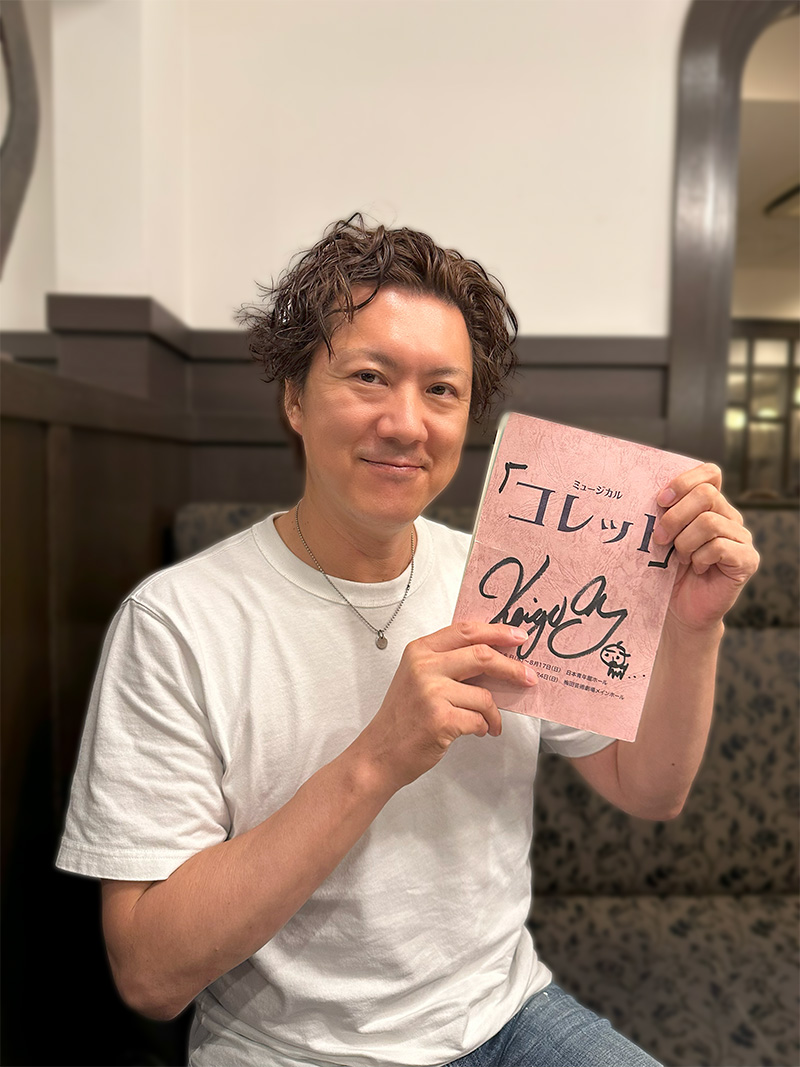 ミュージカル
「コレット」
Keigo
8月17日(日) 日本青年館ホール
24日(日) 梅田芸術劇場メインホール